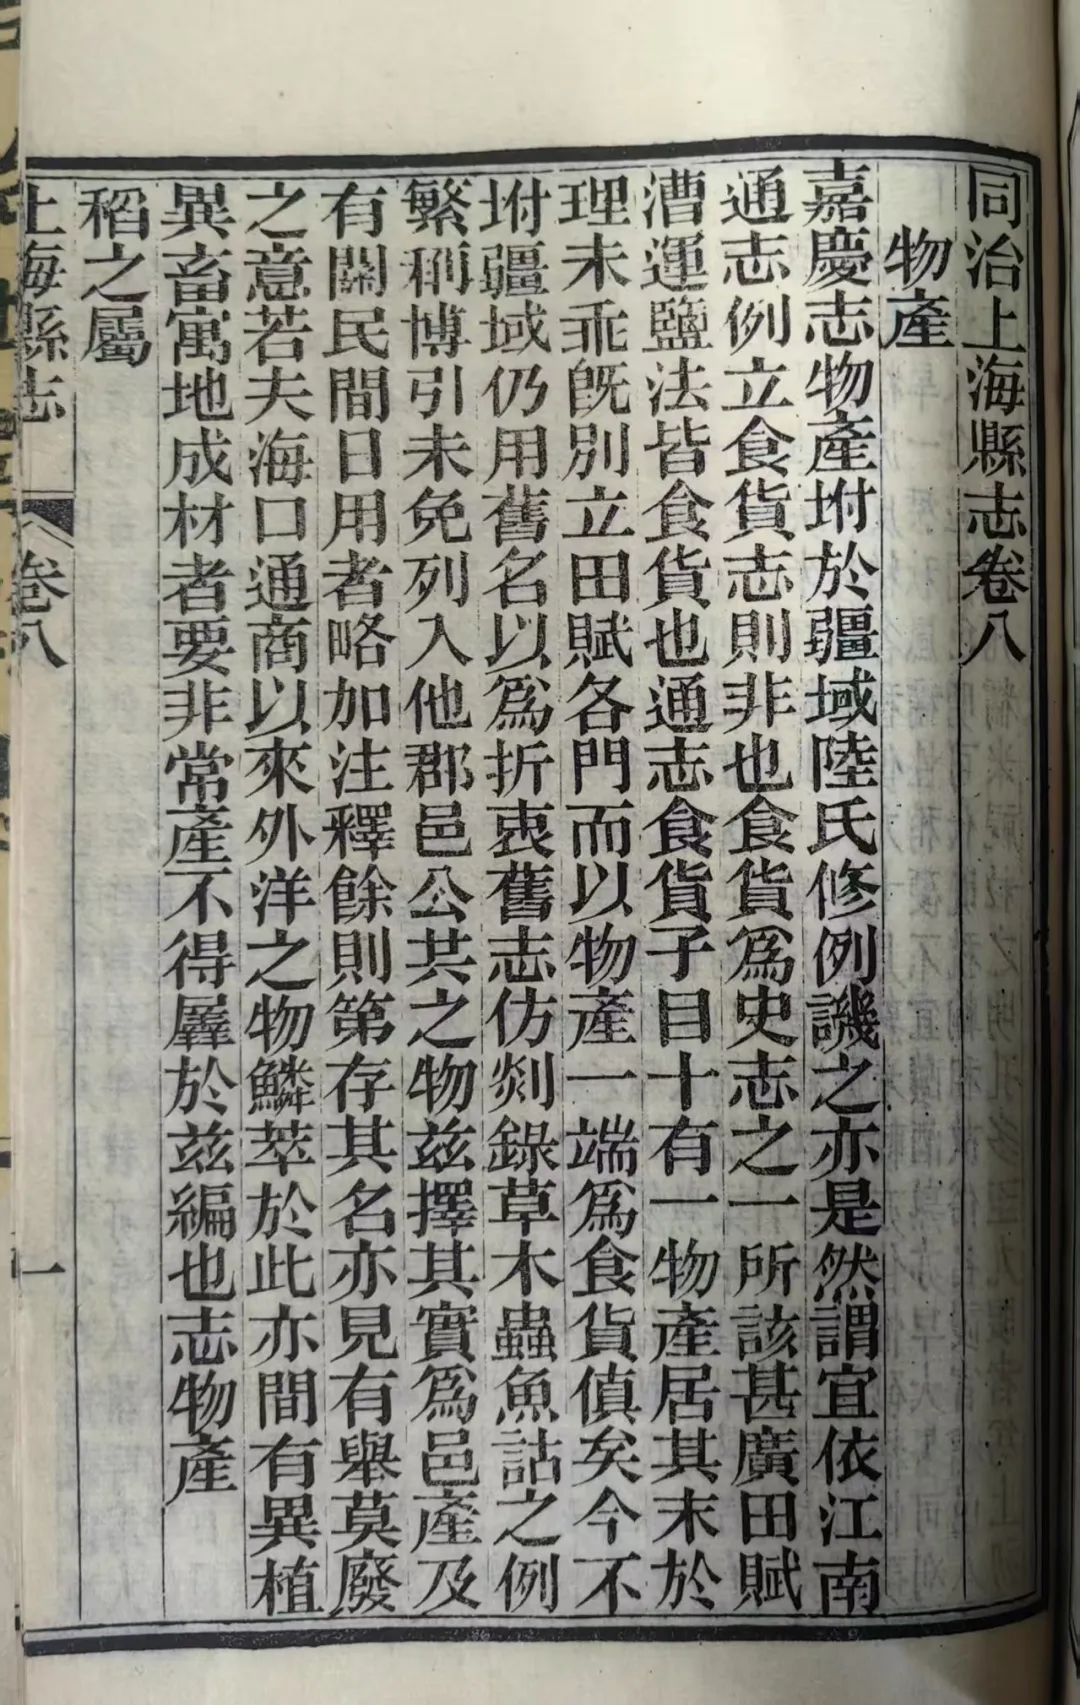 同治上海縣志卷八
物產
嘉慶志物產坿於疆域陸氏修例譏之亦是然謂宜依江南
通志例立食貨志則非也食貨爲史志之一所該甚廣田賦
漕運鹽法皆食貨也通志食貨子目十有一物產居其末於
理未乖旣別立田賦各門而以物產一端爲食貨傎矣今不
坿疆域仍用舊名以爲折衷舊志仿剡錄草木蟲魚詁之例
繁稱博引未免列入他郡邑公共之物茲擇其實爲邑產及
有關民間日用者略加注釋餘則第存其名亦見有舉莫廢
之意若夫海口通商以來外洋之物鱗萃於此亦間有異植
異畜寓地成材者要非常產不得羼於茲編也志物產
稻之屬
上海縣志
卷八
一